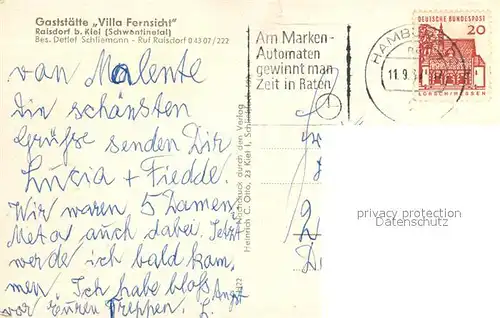 Gaststätte „Villa Fernsicht"
Raisdorf b. Kiel (Schwentinetal)
Bes. Detlef Schliemann - Ruf Raisdorf 0 43 07/222
van Malente
die schönsten
Grüße senden Dir
Lucia + Fiedde.
Wir waren 5 Damen,
Meta auch dabei. Jetzt
werde ich bald kom,
men. Ich habe bloß
Angst
vor Euren Treppen. L.
Nachdruck durch den Verlag
Heinrich C. Otto, 23 Kiel 1,
Am Marken-
Automaten
gewinnt man
Zeit in Raten
HAMBU
11.9.
DEUTSCHE BUNDESPOST
20
LORSCH/HESSEN
privacy protection
Datenschutz